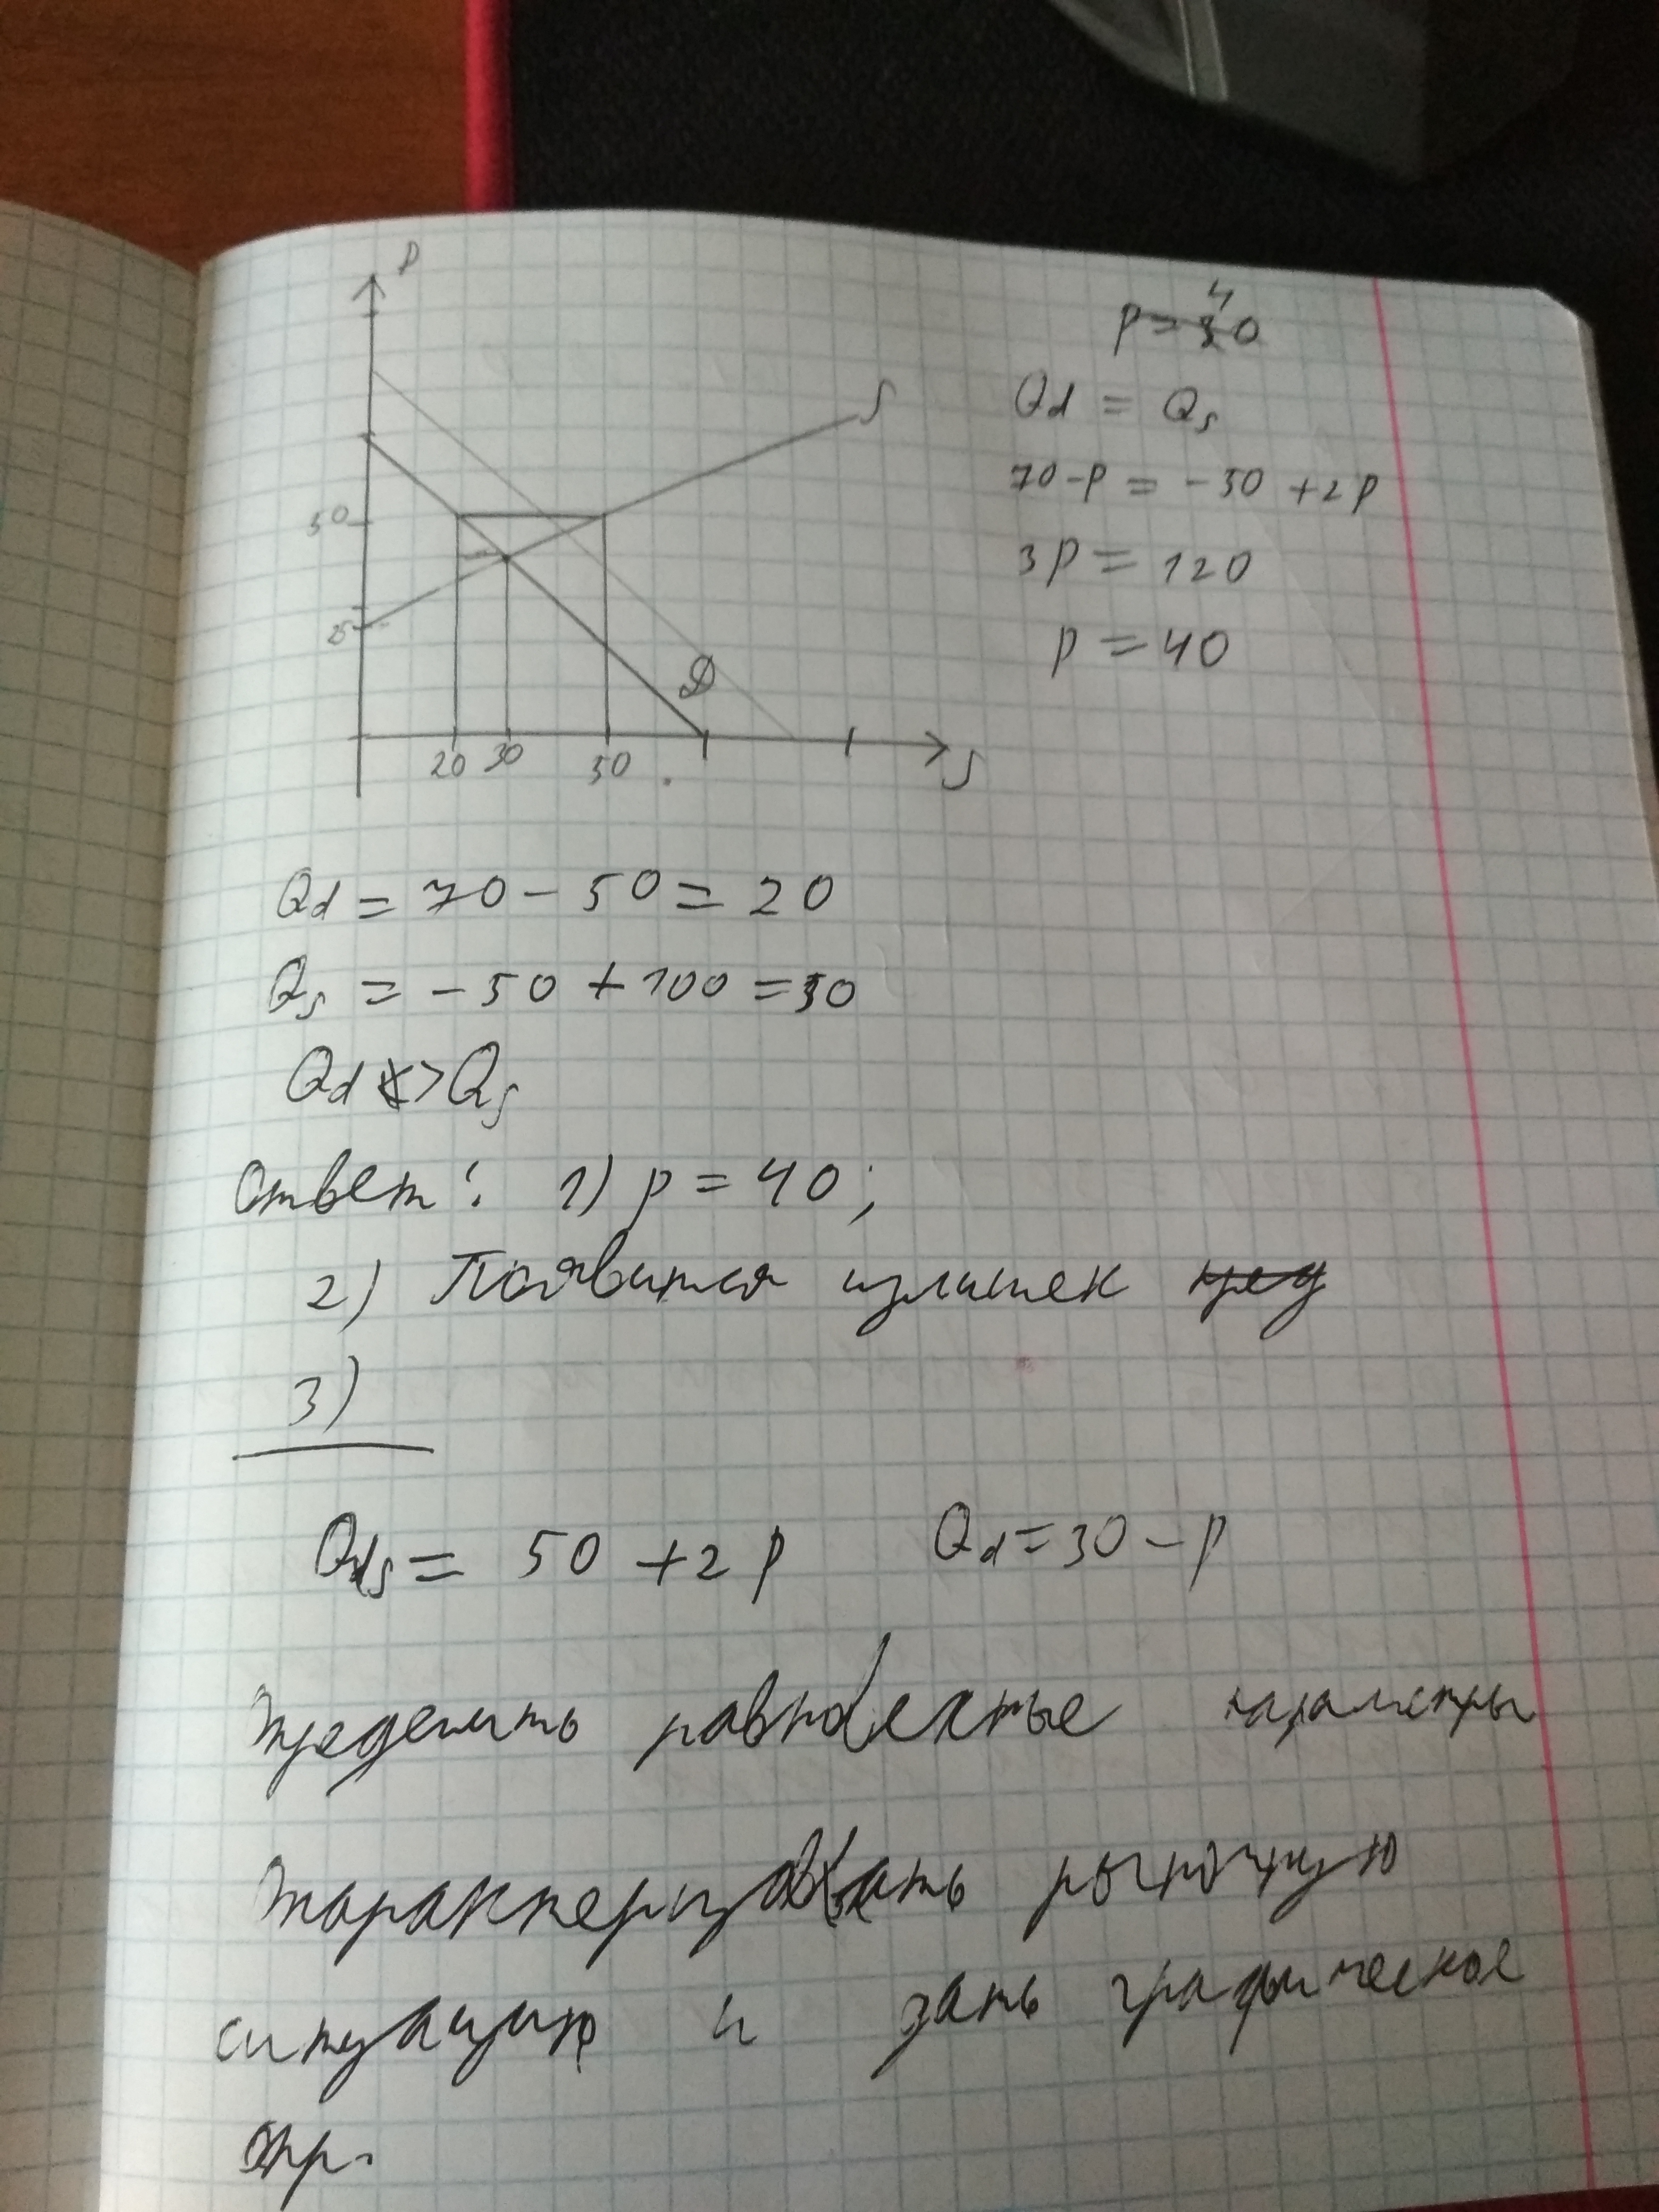 P
P = 40
Qd = Qs
S
70 - P = - 50 + 2P
50
3P = 120
P = 40
25
D
20 30 50
S
Qd = 70 - 50 = 20
Qs = - 50 + 100 = 50
Qd > Qs
Ответ: 1) P = 40;
2) Появится излишек
3)
Qs = 50 + 2P Qd = 30 - P
пределить равновесные параметры
характеризовать рыночную
ситуацию и дать графическое